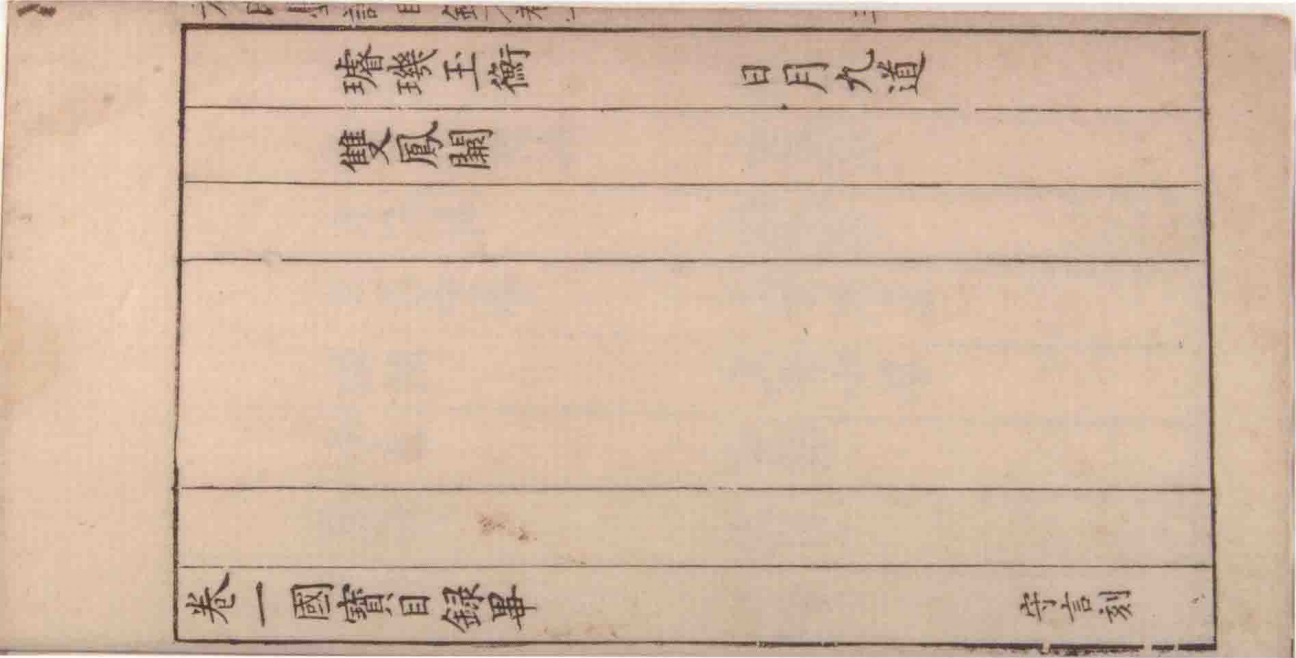 璿璣玉衡　日月九道
雙鳳闕
卷一國寶目録畢　守言刻